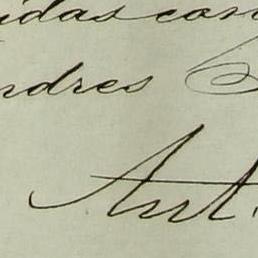 idas con
ndres
Ant.